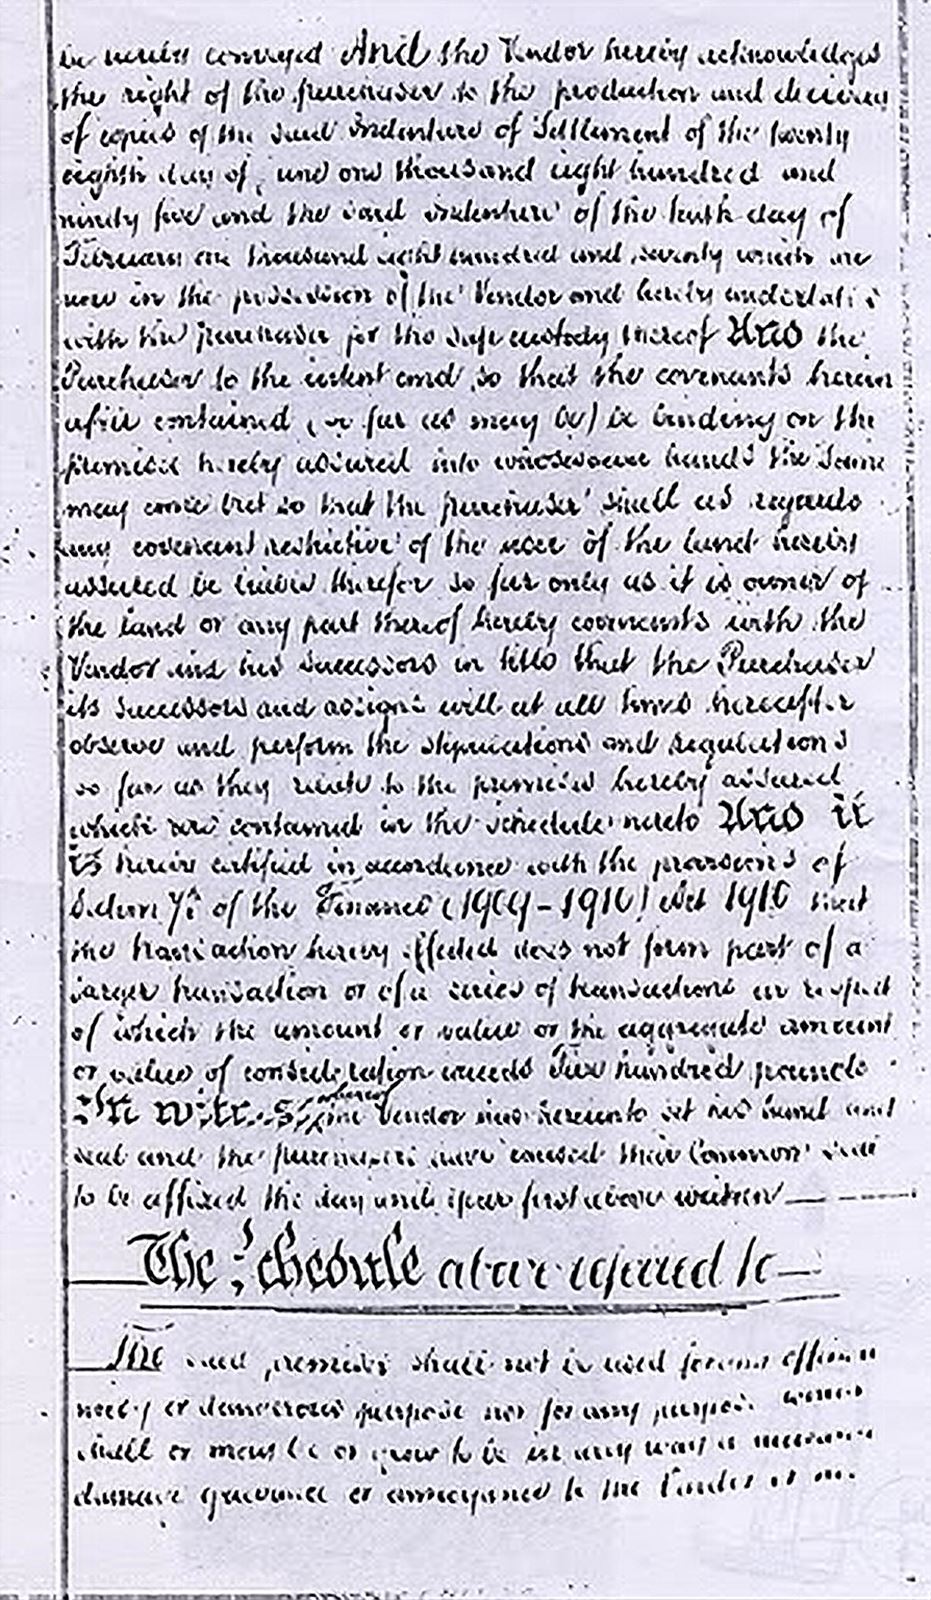 hereby conveyed And the Vendor hereby acknowledges
the right of the purchaser to the production and delivery
of copies of the said Indenture of Settlement of the twenty
eighth day of one thousand eight hundred and
ninety five and the said indenture of the tenth day of
February one thousand eight hundred and seventy which are
now in the possession of the Vendor and hereby undertakes
with the purchaser for the safe custody thereof And the
Purchaser to the intent and so that the covenants herein
after contained (so far as may be) be binding on the
premises hereby assured into whosesoever hands the same
may come but so that the purchaser shall as regards
any covenant restrictive of the user of the land hereby
assured be liable therefor so far only as it is owner of
the land or any part thereof hereby covenants with the
Vendor and his successors in title that the Purchaser
its successors and assigns will at all times hereafter
observe and perform the stipulations and regulations
so far as they relate to the premises hereby assured
which are contained in the schedule hereto And it
is hereby certified in accordance with the provisions of
Section 73 of the Finance (1909-1910) Act 1910 that
the transaction hereby effected does not form part of a
larger transaction or of a series of transactions in respect
of which the amount or value or the aggregate amount
or value of consideration exceeds five hundred pounds
In witness whereof the Vendor has hereunto set his hand and
seal and the purchasers have caused their Common Seal
to be affixed the day and year first above written
The Schedule above referred to
The said premises shall not be used for any offensive
noisy or dangerous purpose nor for any purpose which
shall or may be or grow to be in any way a nuisance
damage grievance or annoyance to the Vendor or